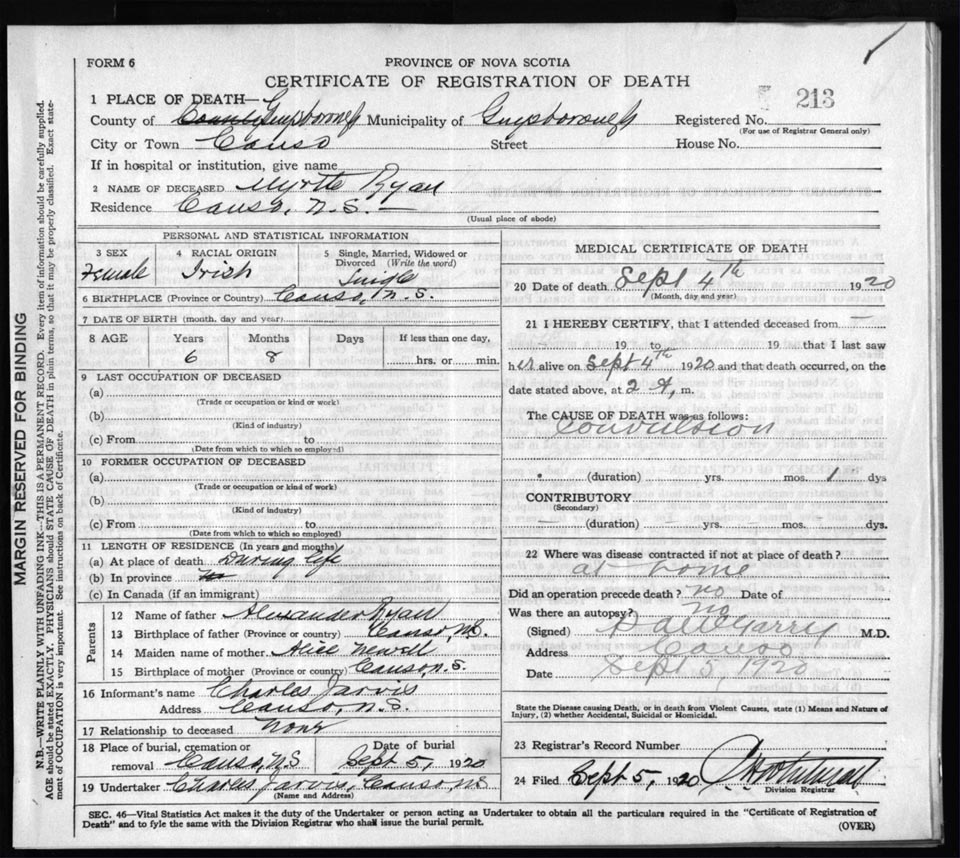 FORM 6
PROVINCE OF NOVA SCOTIA
CERTIFICATE OF REGISTRATION OF DEATH
213
1 PLACE OF DEATH—
County of County Guysborough Municipality of Guysborough Registered No.
(For use of Registrar General only)
City or Town Canso Street House No.
If in hospital or institution, give name
2 NAME OF DECEASED Myrtle Ryan
Residence Canso, N.S. —
(Usual place of abode)
PERSONAL AND STATISTICAL INFORMATION
3 SEX 4 RACIAL ORIGIN 5 Single, Married, Widowed or Divorced (Write the word)
Female Irish Single
6 BIRTHPLACE (Province or Country) Canso, N.S.
7 DATE OF BIRTH (month, day and year)
8 AGE Years Months Days If less than one day,
6 8 hrs. or min.
9 LAST OCCUPATION OF DECEASED
(a)
(Trade or occupation or kind or work)
(b)
(Kind of industry)
(c) From to
(Date from which to which so employed)
10 FORMER OCCUPATION OF DECEASED
(a)
(Trade or occupation or kind of work)
(b)
(Kind of industry)
(c) From to
(Date from which to which so employed)
11 LENGTH OF RESIDENCE (In years and months)
(a) At place of death During life
(b) In province
(c) In Canada (if an immigrant)
Parents
12 Name of father Alexander Ryan
13 Birthplace of father (Province or country) Canso N.S.
14 Maiden name of mother Alice Newell
15 Birthplace of mother (Province or country) Canso N.S.
16 Informant's name Charles Jarvis
Address Canso, N.S.
17 Relationship to deceased None
18 Place of burial, cremation or removal Canso, N.S. Date of burial Sept 5, 1920
19 Undertaker Charles Jarvis, Canso N.S.
(Name and Address)
MEDICAL CERTIFICATE OF DEATH
20 Date of death Sept 4th 1920
(Month, day and year)
21 I HEREBY CERTIFY, that I attended deceased from —
19 to 19 that I last saw
her alive on Sept 4th 1920 and that death occurred, on the
date stated above, at 2 A, m.
The CAUSE OF DEATH was as follows:
Convulsion
(duration) yrs. mos. 1 dys
CONTRIBUTORY
(Secondary)
— (duration) — yrs. — mos. — dys.
22 Where was disease contracted if not at place of death?
at home
Did an operation precede death? no Date of
Was there an autopsy? no
(Signed) M.D.
Address Canso
Date Sept 5, 1920
State the Disease causing Death, or in death from Violent Causes, state (1) Means and Nature of
Injury, (2) whether Accidental, Suicidal or Homicidal.
23 Registrar's Record Number
24 Filed Sept 5, 1920
Division Registrar
SEC. 46—Vital Statistics Act makes it the duty of the Undertaker or person acting as Undertaker to obtain all the particulars required in the "Certificate of Registration of
Death" and to fyle the same with the Division Registrar who shall issue the burial permit.
(OVER)
MARGIN RESERVED FOR BINDING
N.B.—WRITE PLAINLY WITH UNFADING INK—THIS IS A PERMANENT RECORD. Every item of information should be carefully supplied.
AGE should be stated EXACTLY. PHYSICIANS should STATE CAUSE OF DEATH in plain terms, so that it may be properly classified. Exact state-
ment of OCCUPATION is very important. See instructions on back of Certificate.